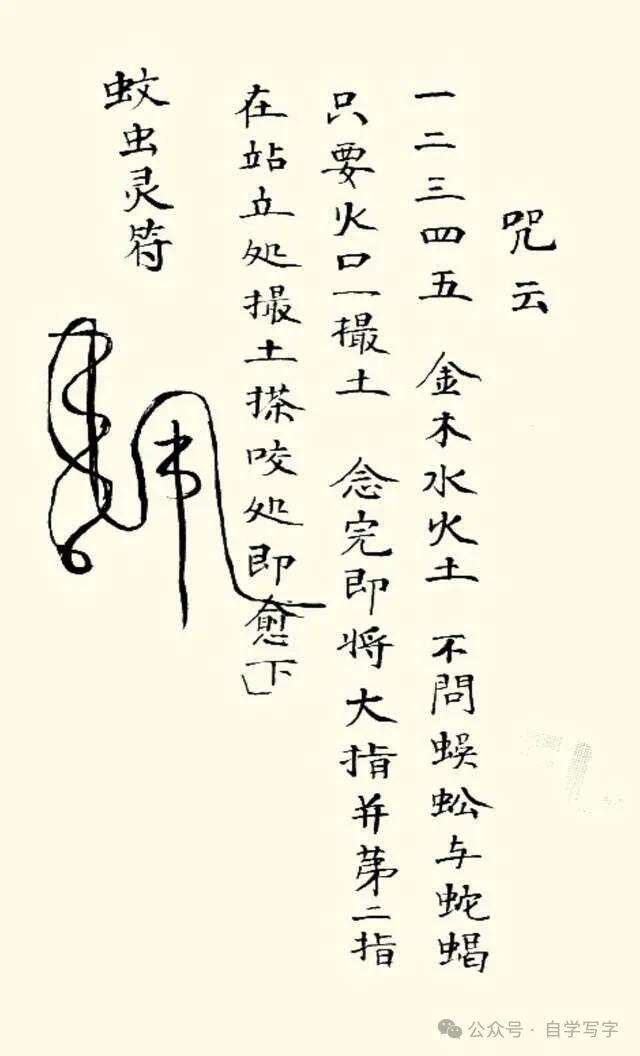 咒云
一二三四五　金木水火土　不問蜈蚣与蛇蝎
只要火口一撮土　念完即将大指并第二指
在站立处撮土搽咬处即愈「下」
蚊虫灵符
公众号·自学写字